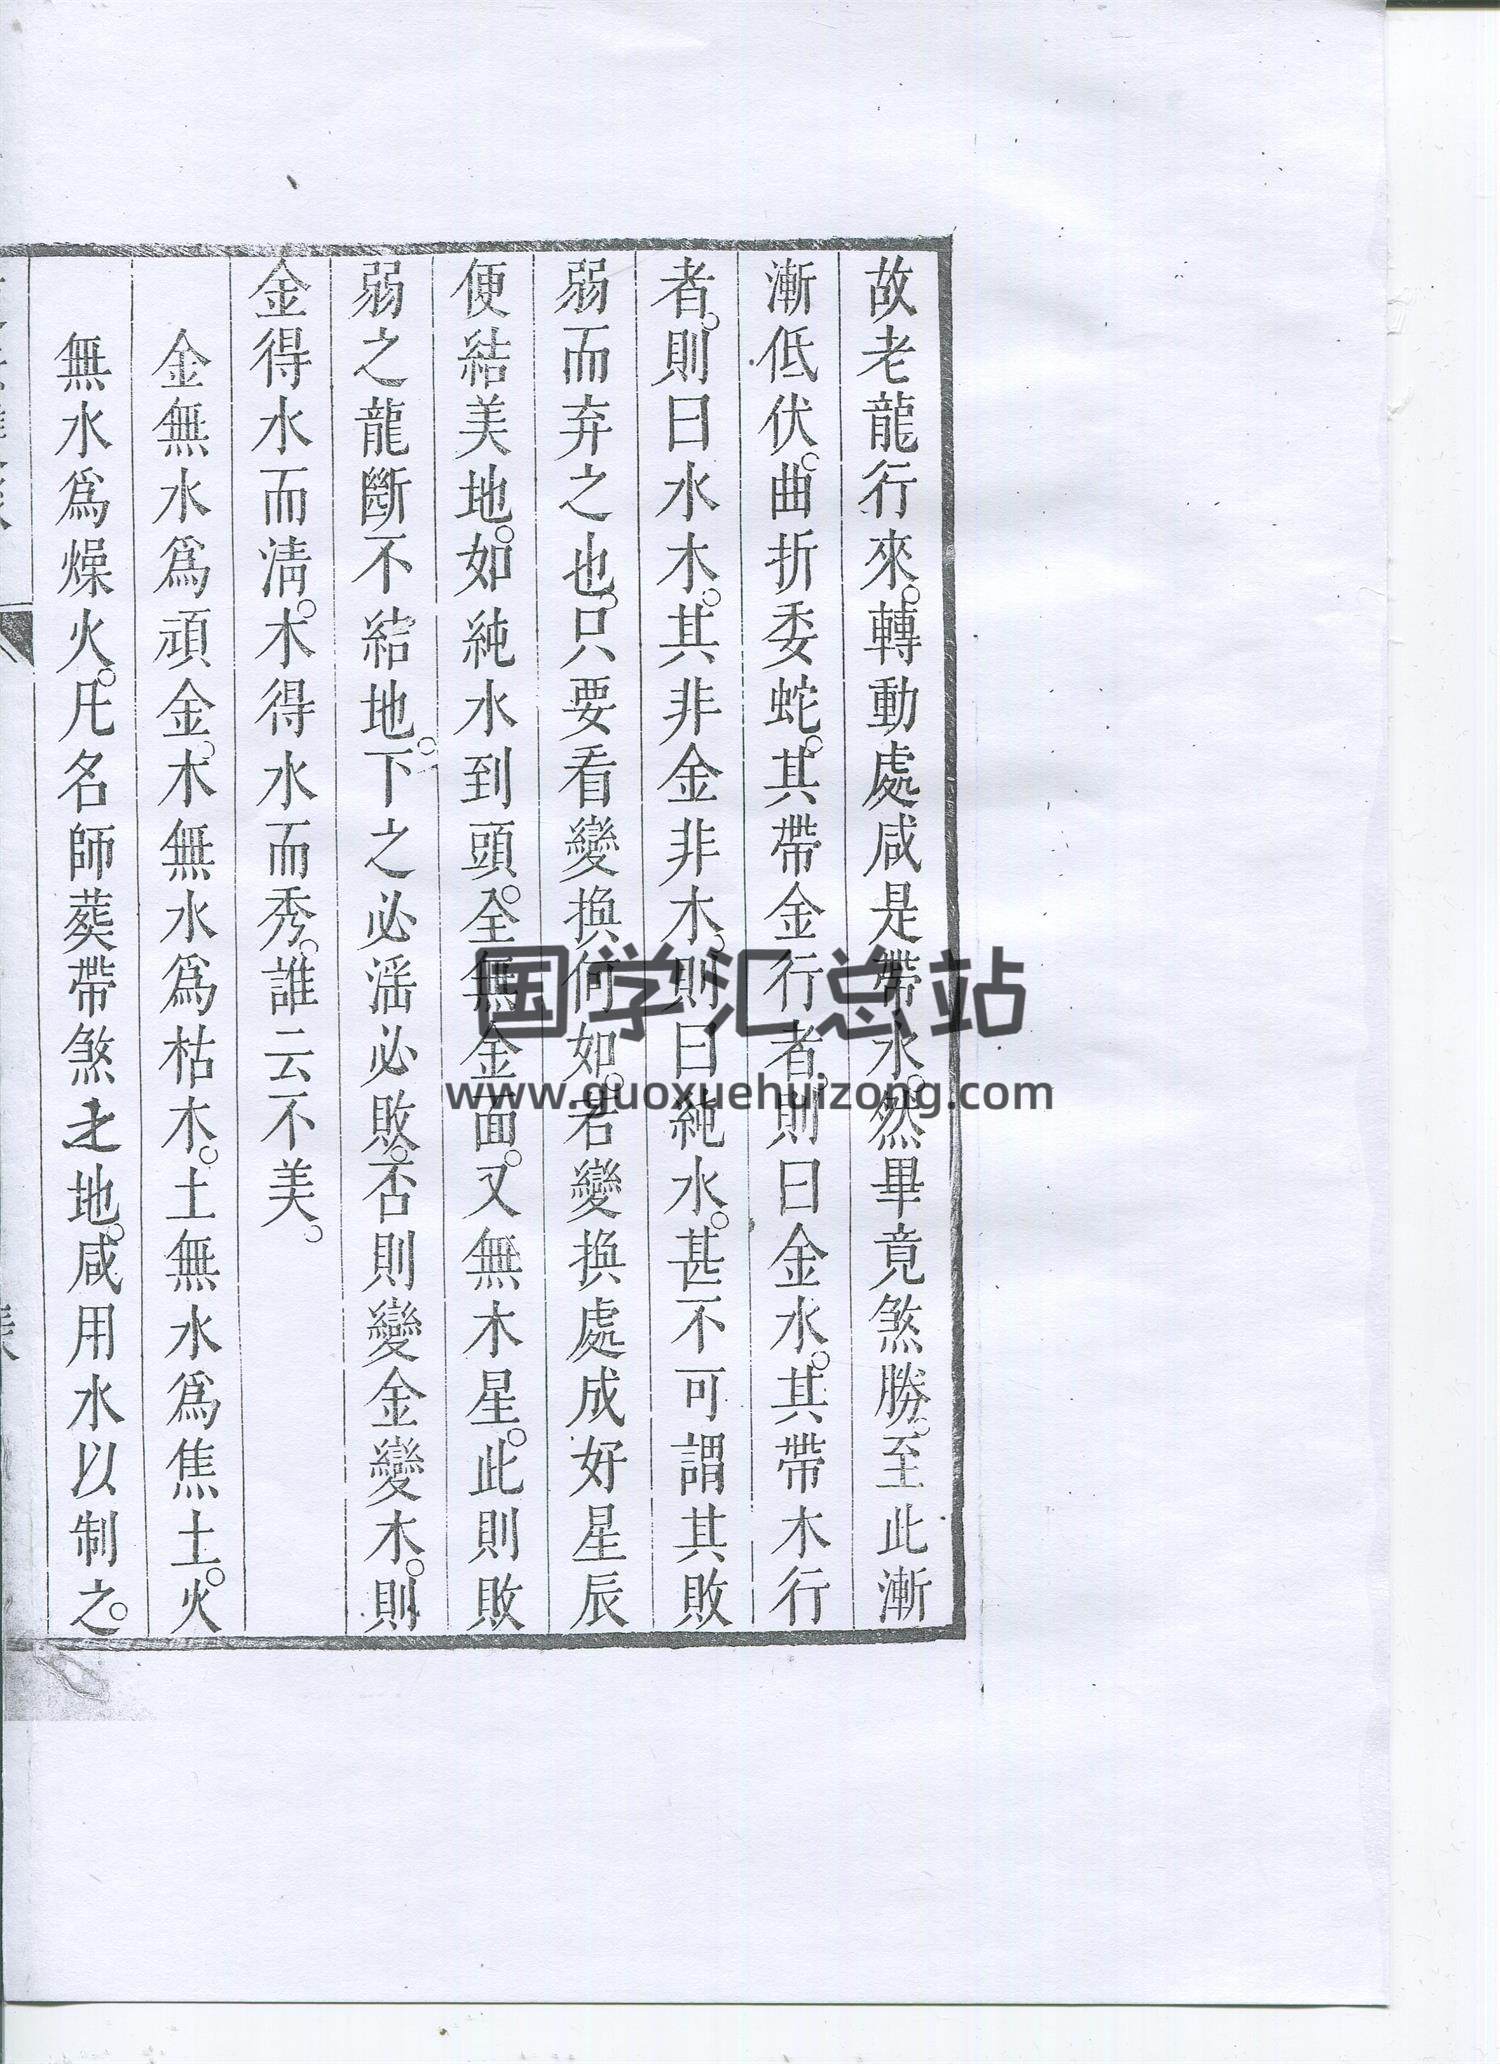 故老龍行來。轉動處咸是帶水。然畢竟煞勝。至此漸
漸低伏。曲折委蛇。其帶金行者。則曰金水。其帶木行
者。則曰水木。其非金非木。則曰純水。甚不可謂其敗
弱而弃之也。只要看變換何如。若變換處成好星辰
便結美地。如純水到頭。全無金面。又無木星。此則敗
弱之龍斷不結地。下之必滛必敗。否則變金變木。則
金得水而清。木得水而秀。誰云不美。
金無水爲頑金。木無水爲枯木。土無水爲焦土。火
無水爲燥火。凡名師葬帶煞之地。咸用水以制之。
国学汇总站
www.guoxuehuizong.com